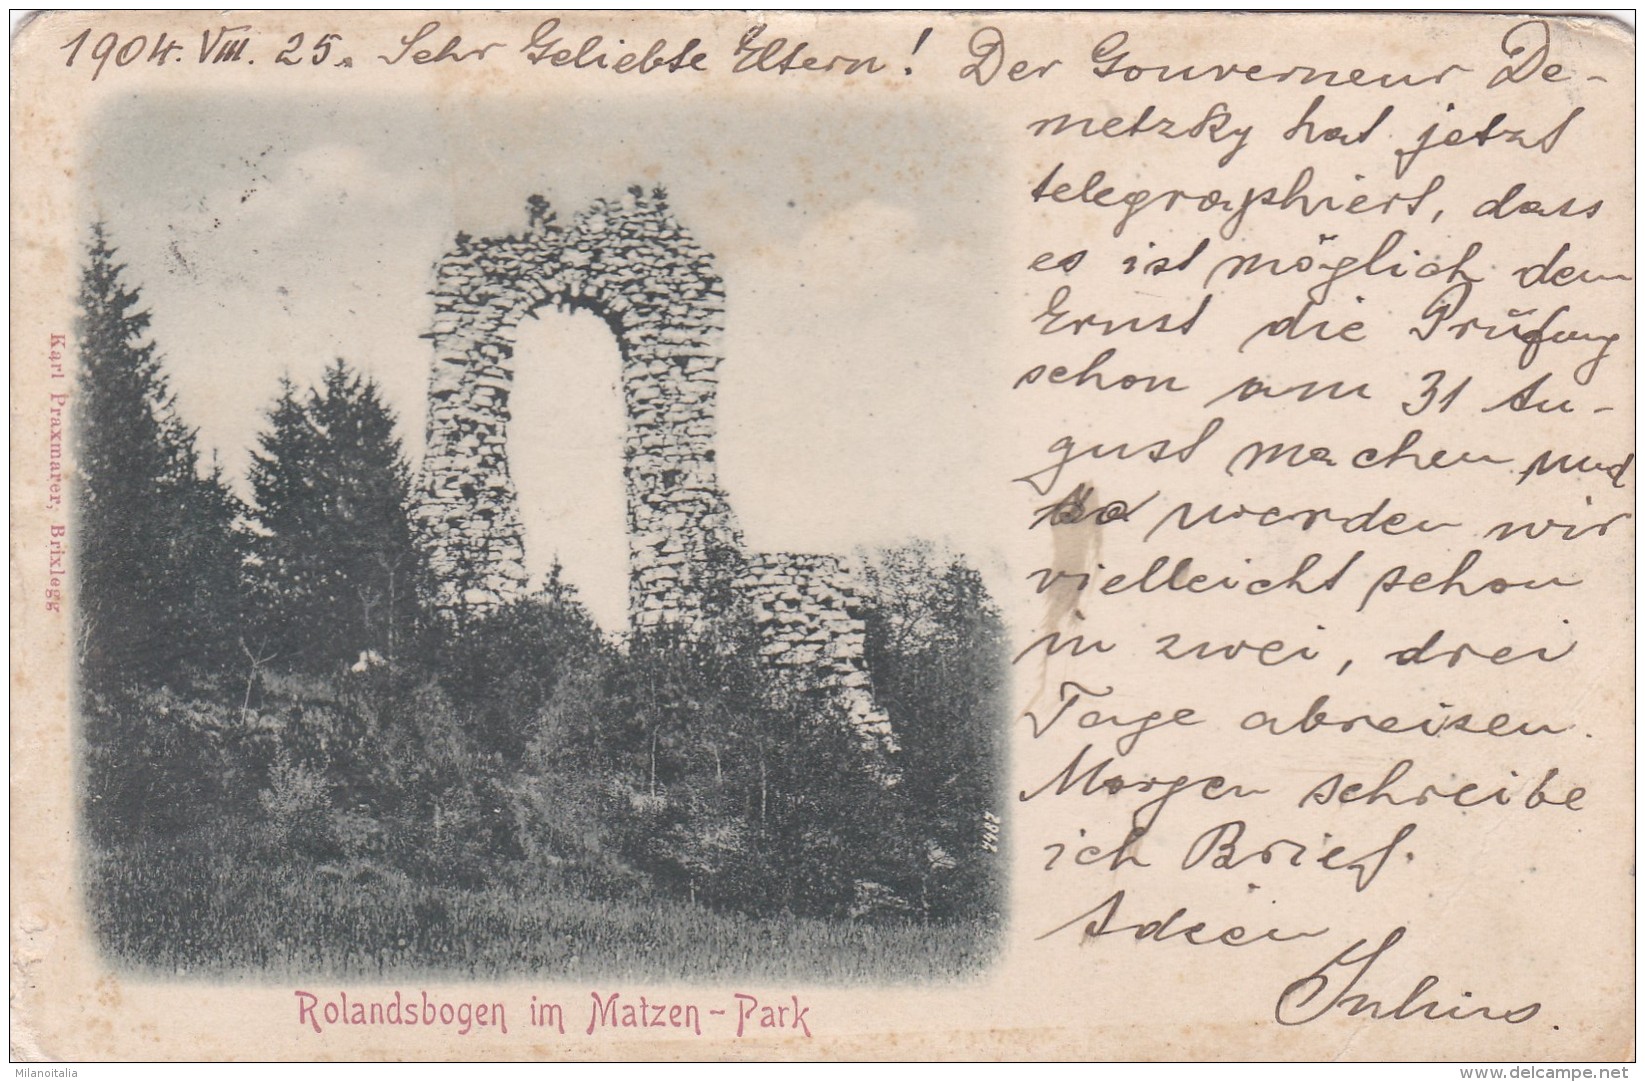 1904. VIII. 25. Sehr Geliebte Eltern! Der Gouverneur De-
metzky hat jetzt
telegraphiert, dass
es ist möglich dem
Ernst die Prüfung
schon am 31 Au-
gust machen und
so werden wir
vielleicht schon
in zwei, drei
Tage abreisen.
Morgen schreibe
ich Brief.
Adieu
Julius.
Karl Praxmarer, Brixlegg
4482
Rolandsbogen im Matzen-Park
Milanoitalia
www.delcampe.net